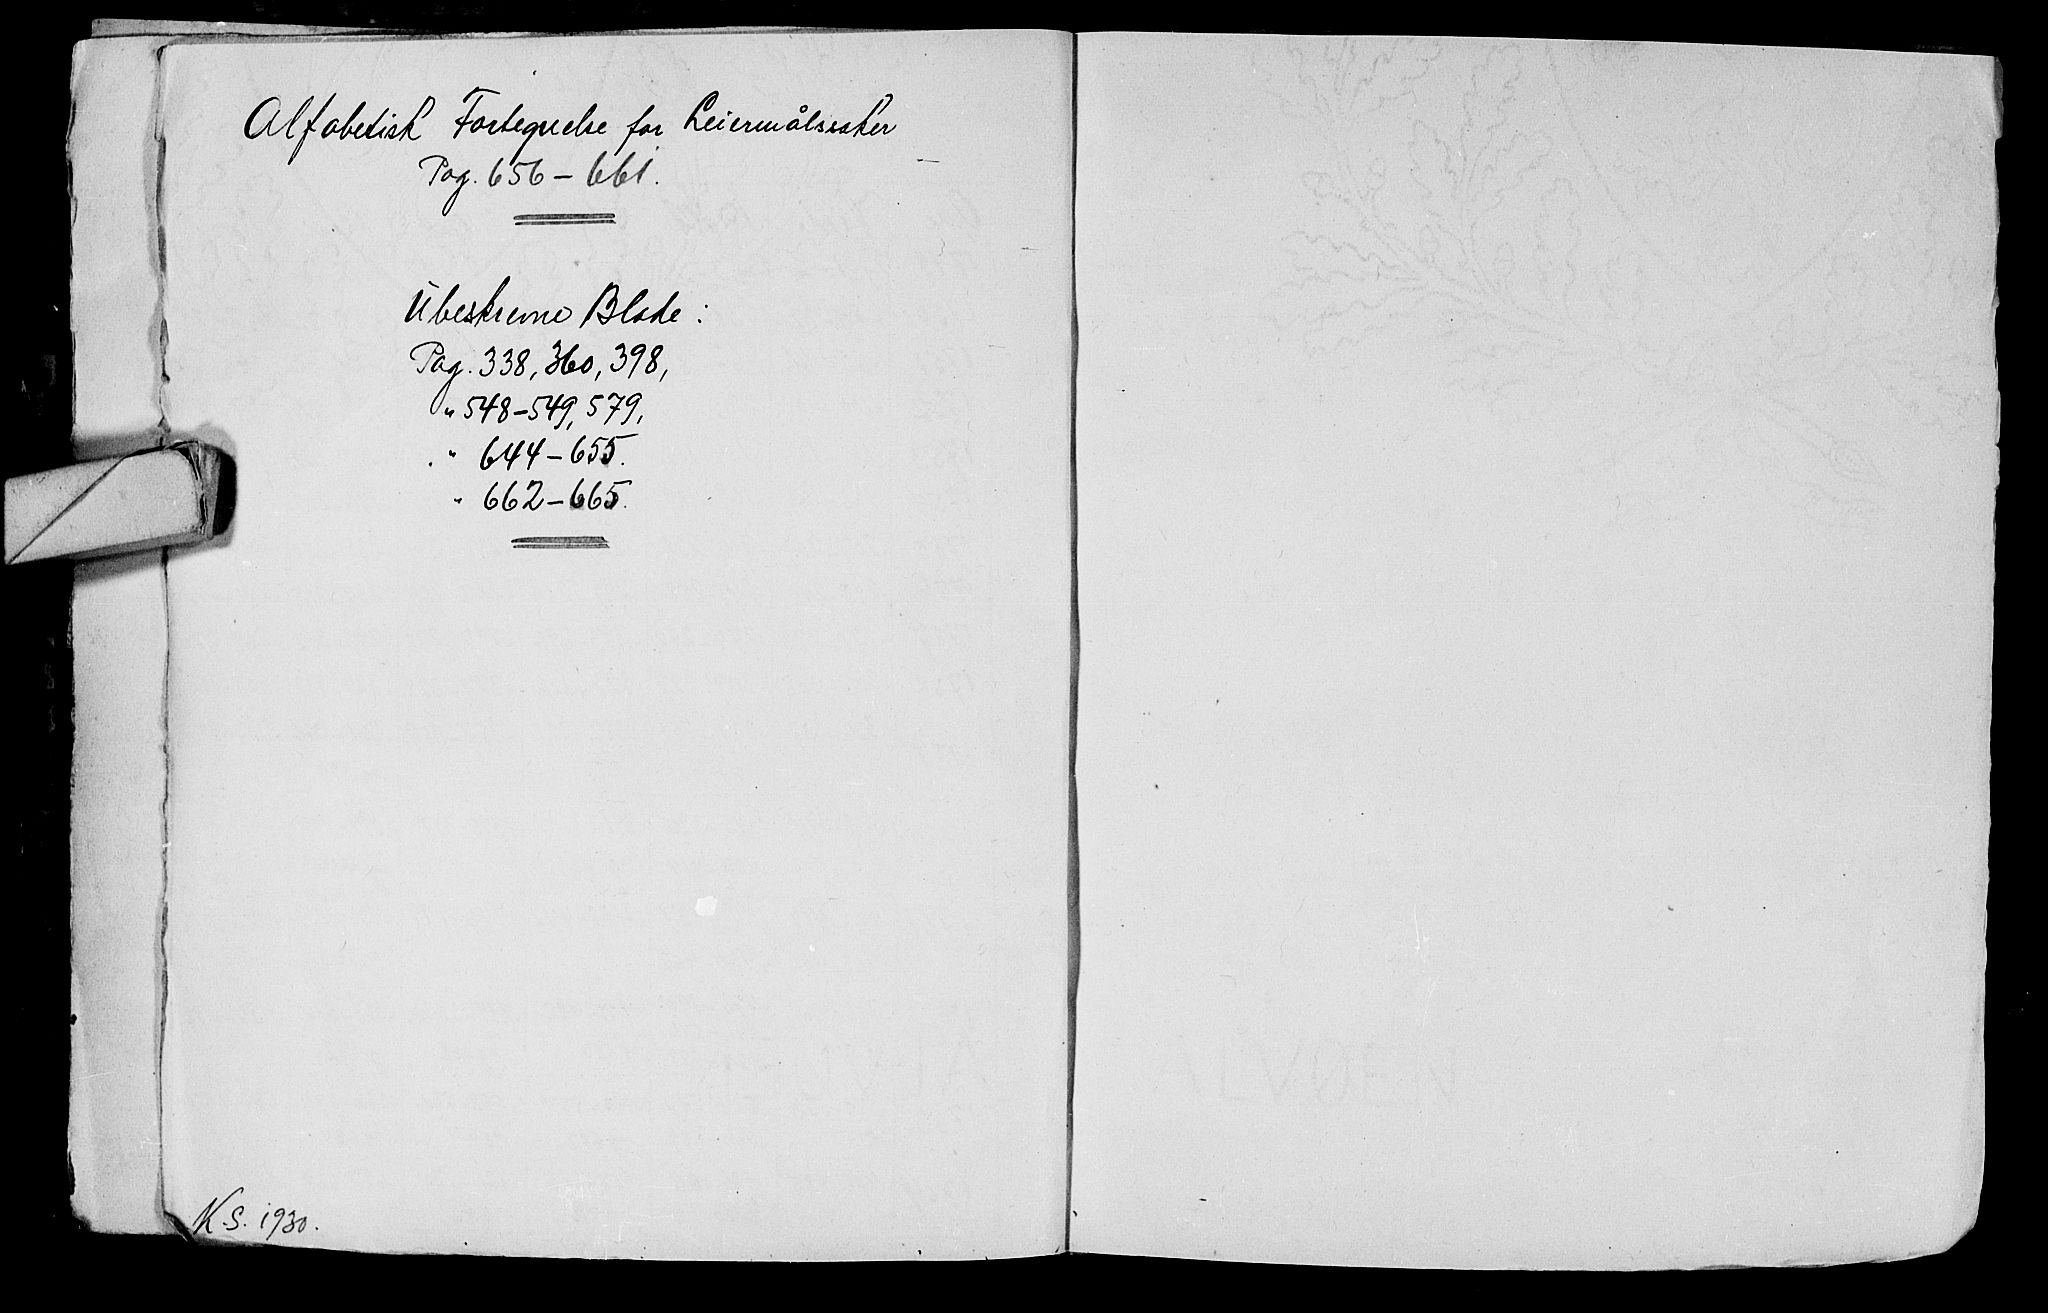 Alfabetisk Fortegnelse for Leiermålssaker
Pag. 656 – 661.
Ubeskrevne Blade:
Pag. 338, 360, 398,
" 548–549, 579,
" 644–655.
" 662–665.
K.S. 1930.